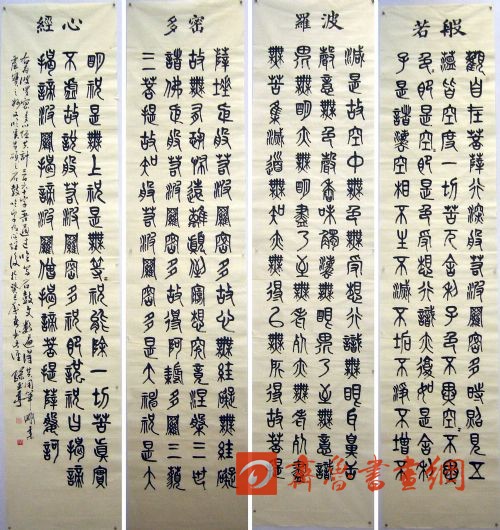 般若
觀自在菩薩行深般若波羅密多時照見五
蘊皆空度一切苦厄舍利子色不異空空不異
色色即是空空即是色受想行識亦復如是舍利
子是諸法空相不生不滅不垢不淨不增不
波羅
減是故空中無色無受想行識無眼耳鼻舌
身意無色聲香味觸法無眼界乃至無意識
界無無明亦無無明盡乃至無老死亦無老死盡
無苦集滅道無智亦無得以無所得故菩提
密多
薩埵依般若波羅密多故心無罣礙無罣礙
故無有恐怖遠離顛倒夢想究竟涅槃三世
諸佛依般若波羅密多故得阿耨多羅三藐
三菩提故知般若波羅密多是大神咒是大
心經
明咒是無上咒是無等等咒能除一切苦真實
不虛故說般若波羅密多咒即說咒曰揭諦
揭諦波羅揭諦波羅僧揭諦菩提薩婆訶
齊魯書畫網